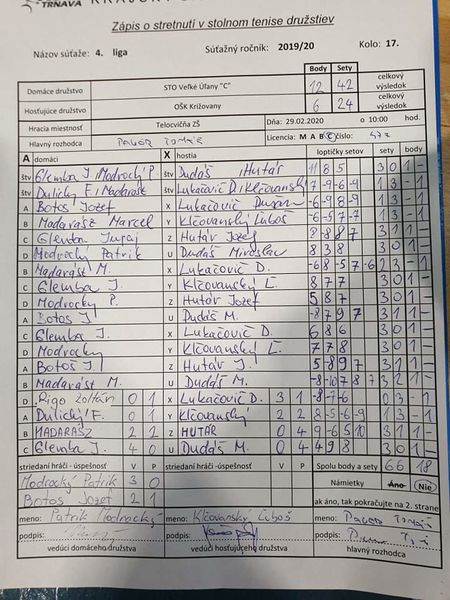 TRNAVA
Zápis o stretnutí v stolnom tenise družstiev
Názov súťaže: 4. liga Súťažný ročník: 2019/20 Kolo: 17.
Body Sety
Domáce družstvo STO Veľké Úľany "C" 12 42 celkový výsledok
Hosťujúce družstvo OŠK Križovany 6 24 celkový výsledok
Hracia miestnosť Telocvičňa ZŠ Dňa: 29.02.2020 o 10:00 hod.
Hlavný rozhodca Licencia: M A B C číslo:
A domáci X hostia loptičky setov sety body
štv Glemba J Modrocký P. štv Dudáš Hutár 11 8 5 3 0 1 -
štv Dulický F. Madarász štv Lukačovič D. Klčovanský 7 -9 -6 -9 1 3 - 1
A Botoš Jozef X Lukačovič Dušan -6 -9 8 -9 1 3 - 1
B Madarász Marcel Y Klčovanský Ľuboš -6 -5 7 -7 1 3 - 1
C Glemba Juraj Z Hutár Jozef 3 1 1 -
D Modrocky Patrik U Dudáš Miroslav 8 3 8 3 0 1 -
B Madarász M. X Lukačovič D. -6 8 -5 7 -6 2 3 - 1
C Glemba J. Y Klčovanský Ľ. 8 7 7 3 0 1 -
D Modrocky P. Z Hutár Jozef 5 8 7 3 0 1 -
A Botoš J. U Dudáš M. -8 7 9 7 3 1 1 -
C Glemba J. X Lukačovič D. 6 8 6 3 0 1 -
D Modrocky Y Klčovanský Ľ. 7 7 8 3 0 1 -
A Botoš J. Z Hutár J. 5 -8 9 7 3 1 1 -
B Madarász M. U Dudáš M. -8 -10 7 8 7 3 2 1 -
D Rigo Zoltán 0 1 X Lukačovič D. 3 1 -8 -7 -6 0 3 - 1
A Dulický F. 0 1 Y Klčovanský 2 2 8 -5 -6 -9 1 3 - 1
B MADARÁSZ 2 2 Z HUTÁR 0 4 9 -6 5 10 3 1 1 -
C Glemba J. 4 0 U Dudáš M. 0 4 4 9 8 3 0 1 -
striedaní hráči - úspešnosť V P striedaní hráči - úspešnosť V P Spolu body a sety 66 18
Modrocký Patrik 3 0 Námietky Áno Nie
Botoš Jozef 2 1 ak áno, tak pokračujte na 2. strane
meno: Patrik Modrocký meno: Klčovanský Ľuboš meno:
podpis: podpis: podpis:
vedúci domáceho družstva vedúci hosťujúceho družstva hlavný rozhodca